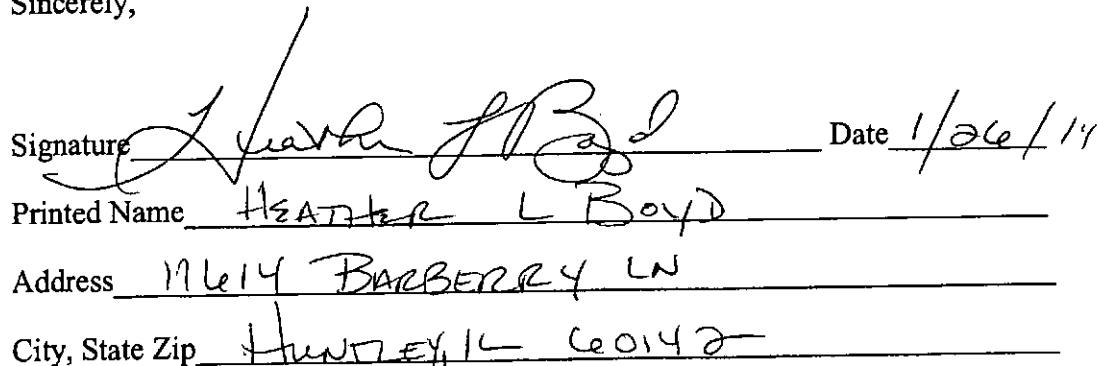 Sincerely,
Signature Heather L Boyd Date 1/26/14
Printed Name HEATHER L BOYD
Address 17614 BARBERRY LN
City, State Zip HUNTLEY, IL 60142